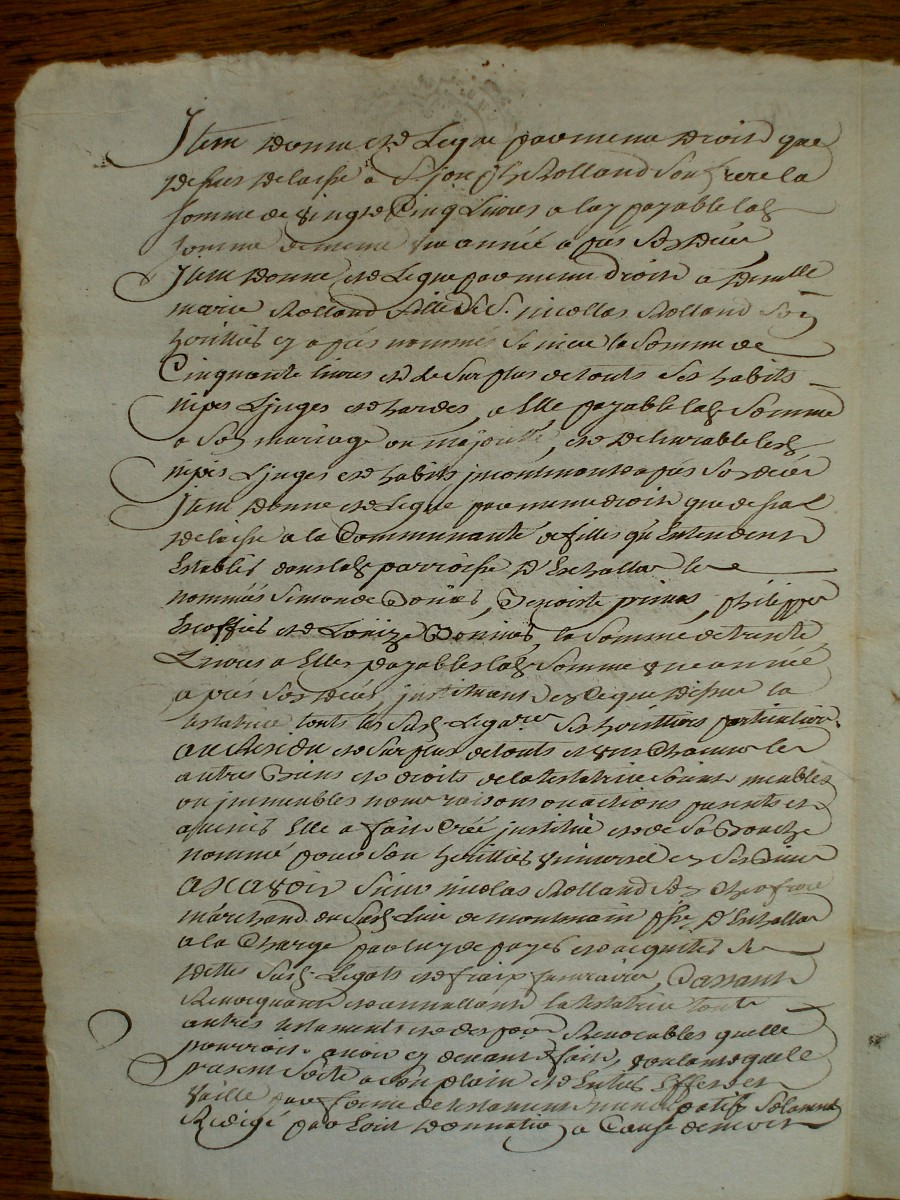 Item donne et Legue par meme droit que
dessus delaisse a Sr joseph Rolland son frere la
somme de vingt Cinq Livres a luy payable lad
somme de meme une année apres son deces
Item donne et Legue par meme droit a demlle
marie Rolland fille de S. nicollas Rolland son
heritier cy apres nommé sa niece la somme de
Cinquante livres et le surplus de touts ses habits
nipes Linges et hardes, a Elle payable lad somme
a son mariage ou majorité, et delivrable lesd
nipes Linges et habits incontinant apres son deces
Item donne et Legue par meme droit que dessus
delaisse a la Communauté de filles qu'Entendent
Establir dans lad parroisse d'
nommés Simonde Benoiste philippe
et Louize la somme de trente
Livres a Elles payables lad somme une année
apres son deces, instituant en ce que dessus la
testatrice touts les susd Legataires ses heritiers particuliers.
au Residu et surplus de touts et uns Chacuns les
autres Biens et droits de la testatrice soient meubles
ou immeubles noms raisons ou actions presents et
a venir Elle a fait Créé institué et de sa Bouche
nommé pour son heritier universel en ses Biens
a scavoir sieur nicolas Rolland son frere
marchand du susd Lieu de
a la Charge par luy de payer et acquiter ses
dettes susd Legats et fraix funeraires, Cassant
Revocquant et annullant la testatrice touts
autres testaments et dispo Revocables quelle
pourroit avoir cy devant fait, voulant que le
present sorte a son plain et Entier Effet et
vaille par forme de testament nuncupatif solannel
Redigé par Ecrit donnation a Cause de mort